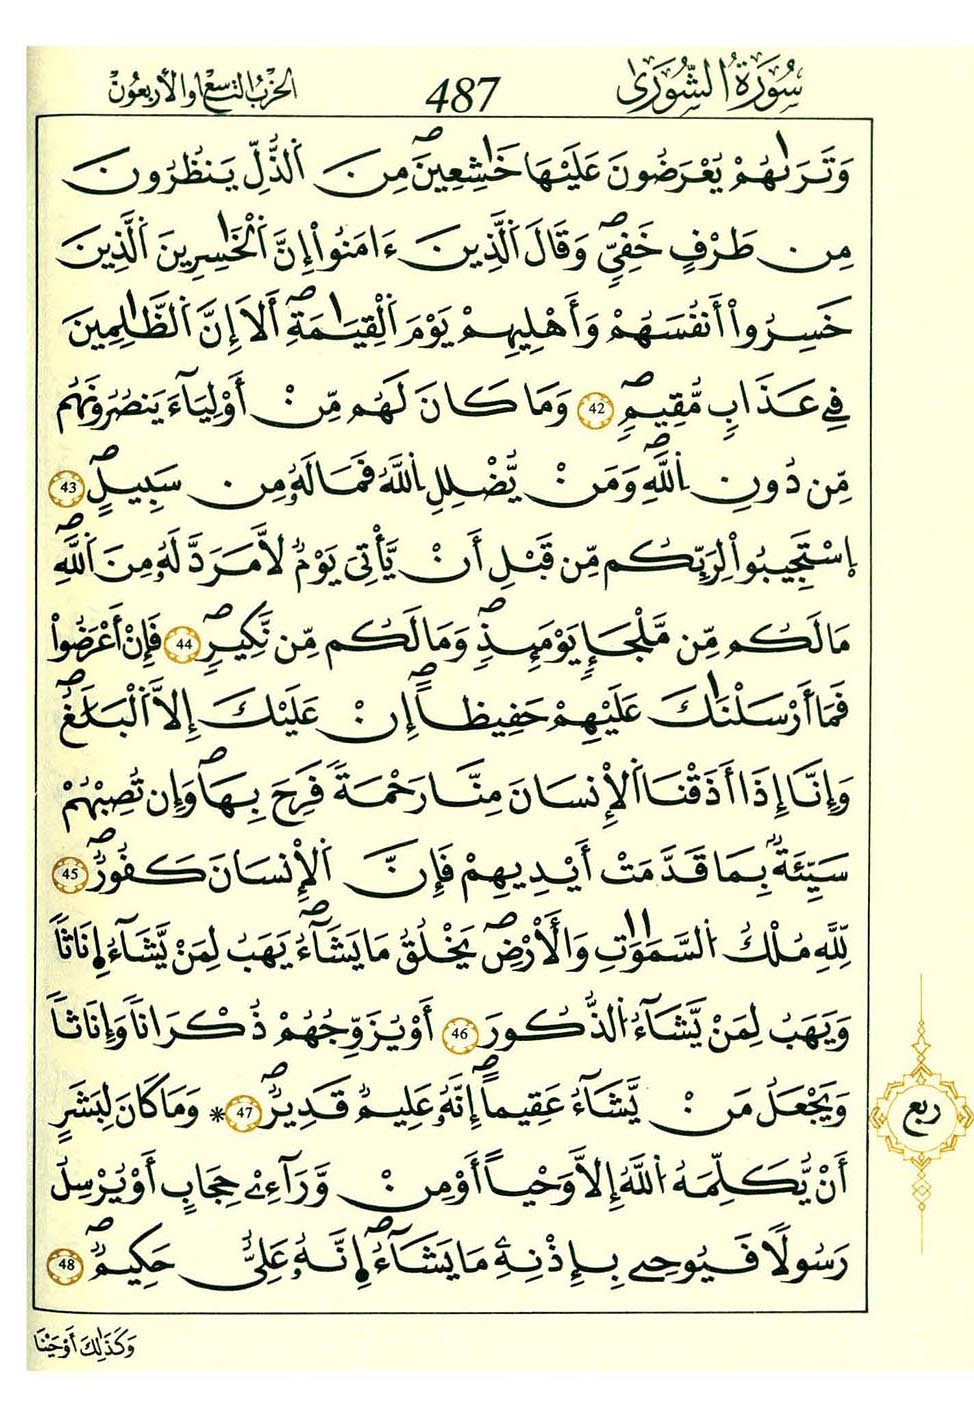 سُورَةُ الشُّورَىٰ 487 الحِزْبُ التَّاسِعُ وَالأَرْبَعُونَ
وَتَرَىٰهُمْ يُعْرَضُونَ عَلَيْهَا خَٰشِعِينَۖ مِنَ اَ۬لذُّلِّ يَنظُرُونَ
مِن طَرْفٍ خَفِيّٖۖ وَقَالَ اَ۬لذِينَ ءَامَنُوٓاْ إِنَّ اَ۬لْخَٰسِرِينَ اَ۬لذِينَ
خَسِرُوٓاْ أَنفُسَهُمْ وَأَهْلِيهِمْ يَوْمَ اَ۬لْقِيَٰمَةِۖ أَلَآ إِنَّ اَ۬لظَّٰلِمِينَ
فِے عَذَابٖ مُّقِيمٖۖ 42 وَمَا كَانَ لَهُم مِّنْ أَوْلِيَآءَ يَنصُرُونَهُم
مِّن دُونِ اِ۬للَّهِۖ وَمَنْ يُّضْلِلِ اِ۬للَّهُ فَمَا لَهُۥ مِن سَبِيلٍۖ 43
اِ۪سْتَجِيبُواْ لِرَبِّكُم مِّن قَبْلِ أَنْ يَّأْتِىَ يَوْمٞ لَّا مَرَدَّ لَهُۥ مِنَ اَ۬للَّهِۖ
مَا لَكُم مِّن مَّلْجَإٖ يَوْمَئِذٖۖ وَمَا لَكُم مِّن نَّكِيرٖۖ 44 فَإِنْ أَعْرَضُواْ
فَمَآ أَرْسَلْنَٰكَ عَلَيْهِمْ حَفِيظاًۖ إِنْ عَلَيْكَ إِلَّا اَ۬لْبَلَٰغُۖ
وَإِنَّآ إِذَآ أَذَقْنَا اَ۬لْإِنسَانَ مِنَّا رَحْمَةٗ فَرِحَ بِهَاۖ وَإِن تُصِبْهُمْ
سَيِّئَةُۢ بِمَا قَدَّمَتْ أَيْدِيهِمْ فَإِنَّ اَ۬لْإِنسَانَ كَفُورٞۖ 45
لِّلهِ مُلْكُ اُ۬لسَّمَٰوَٰتِ وَالْأَرْضِۖ يَخْلُقُ مَا يَشَآءُۖ يَهَبُ لِمَنْ يَّشَآءُ إِنَاثاٗ
وَيَهَبُ لِمَنْ يَّشَآءُ اُ۬لذُّكُورَ 46 أَوْ يُزَوِّجُهُمْ ذُكْرَاناٗ وَإِنَاثاٗ
وَيَجْعَلُ مَنْ يَّشَآءُ عَقِيماًۖ اِنَّهُۥ عَلِيمٞ قَدِيرٞۖ 47 * وَمَا كَانَ لِبَشَرٍ
أَنْ يُّكَلِّمَهُ اُ۬للَّهُ إِلَّا وَحْياً أَوْ مِنْ وَّرَآءِے حِجَابٍ أَوْ يُرْسِلُ
رَسُولٗا فَيُوحِے بِإِذْنِهِۦ مَا يَشَآءُۖ إِنَّهُۥ عَلِىٌّ حَكِيمٞۖ 48
ربع
وَكَذَٰلِكَ أَوْحَيْنَا